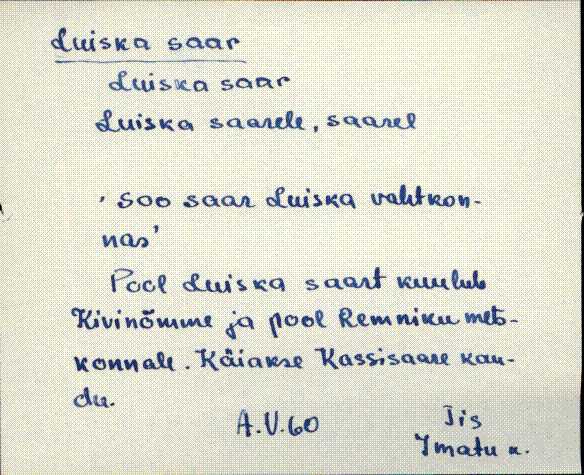 Luiska saar
Luiska saar
Luiska saarele, saarel
'soo saar Luiska vahtkon-
nas'
Pool Luiska saart kuulub
Kivinõmme ja pool Remniku mets-
konnale. Käiakse Kassisaare kau-
du.
A.V.60
Iis
Imatu k.